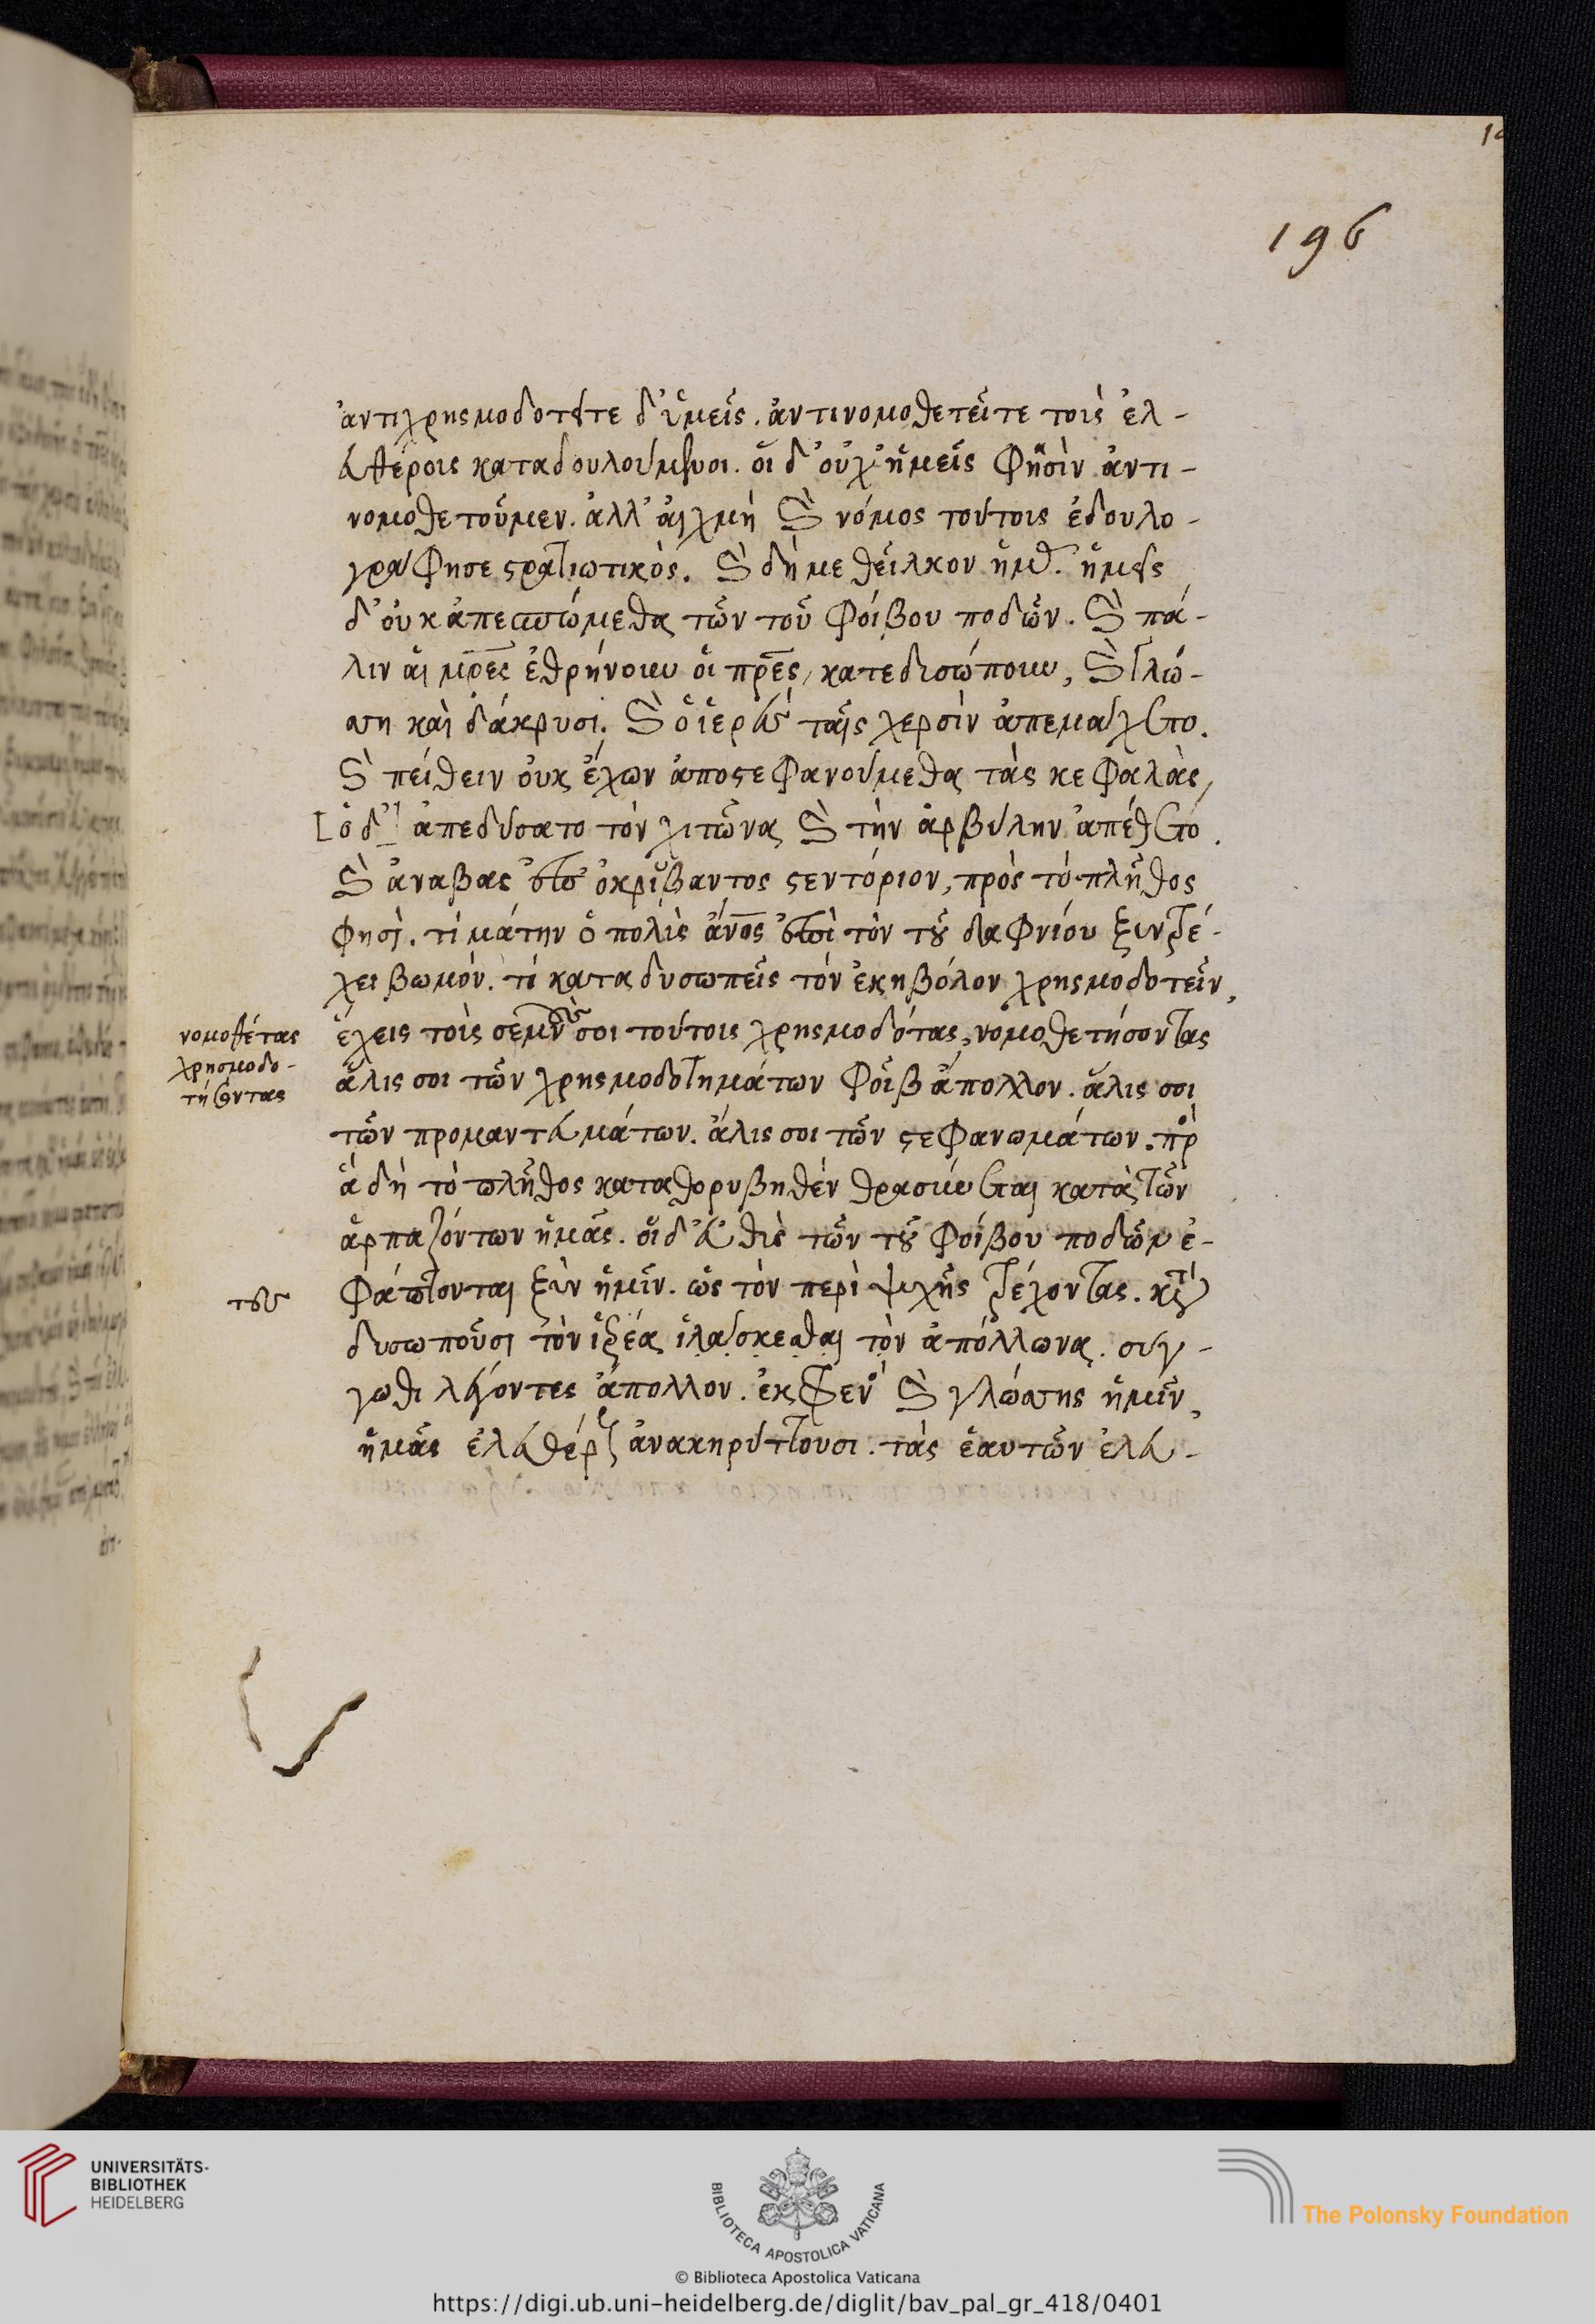 196
ἀντιχρησμοδοτεῖτε δ' ὑμεῖς. ἀντινομοθετεῖτε τοῖς ἐλ-
ευθέροις καταδουλούμενοι. οἱ δ' οὐχ' ἡμεῖς φησὶν ἀντι-
νομοθετοῦμεν. ἀλλ' αἰχμὴ καὶ νόμος τούτοις ἐδουλο-
γράφησε στρατιωτικός. καὶ δὴ μεθεῖλκον ἡμᾶς. ἡμεῖς
δ' οὐκ ἀπεσπώμεθα τῶν τοῦ Φοίβου ποδῶν. καὶ πά-
λιν αἱ μρες ἐθρήνουν οἱ πρες, κατεδυσώπουν, καὶ γλώ-
ττη καὶ δάκρυσι. καὶ ὁ ἱερεὺς ταῖς χερσὶν ἀπεμάχετο.
καὶ πείθειν οὐκ ἔχων ἀποστεφανούμεθα τὰς κεφαλὰς,
[ὁ δ'] ἀπεδύσατο τὸν χιτῶνα καὶ τὴν ἀρβύλην ἀπέθετο.
καὶ ἀναβὰς ἐπ' ὀκρίβαντος στεντόριον, πρὸς τὸ πλῆθος
φησὶ. τί μάτην ὁ πολὺς ἄνος ἐπὶ τὸν τοῦ δαφνίου ξυντρέ-
χει βωμόν. τί καταδυσωπεῖς τὸν ἑκηβόλον χρησμοδοτεῖν,
ἔχεις τοὺς σεμνούς σοι τούτοις χρησμοδότας, νομοθετήσοντας
νομοθέτας
χρησμοδο-
τήσοντας
ἅλις σοι τῶν χρησμοδοτημάτων Φοῖβ' ἄπολλον. ἅλις σοι
τῶν προμαντευμάτων. ἅλις σοι τῶν στεφανωμάτων. πρ
ἃ δὴ τὸ πλῆθος καταθορυβηθὲν θρασύνεται κατὰ τῶν
ἁρπαζόντων ἡμᾶς. οἱ δ' εὐθὺς τῶν τοῦ Φοίβου ποδῶν ἐ-
φάπτονται ξὺν ἡμῖν. ὡς τὸν περὶ ψυχῆς τρέχοντας. κ
του
δυσωποῦσι τὸν ἱερέα ἱλάσκεσθαι τὸν ἀπόλλωνα. σύγ-
γνωθι λέγοντες ἄπολλον. ἐκ φρενὸς καὶ γλώττης ἡμῖν,
ἡμᾶς ἐλευθέρους ἀνακηρύττουσι. τὰς ἑαυτῶν ἐλευ-
UNIVERSITÄTS-
BIBLIOTHEK
HEIDELBERG
BIBLIOTECA APOSTOLICA VATICANA
The Polonsky Foundation
© Biblioteca Apostolica Vaticana
https://digi.ub.uni-heidelberg.de/diglit/bav_pal_gr_418/0401